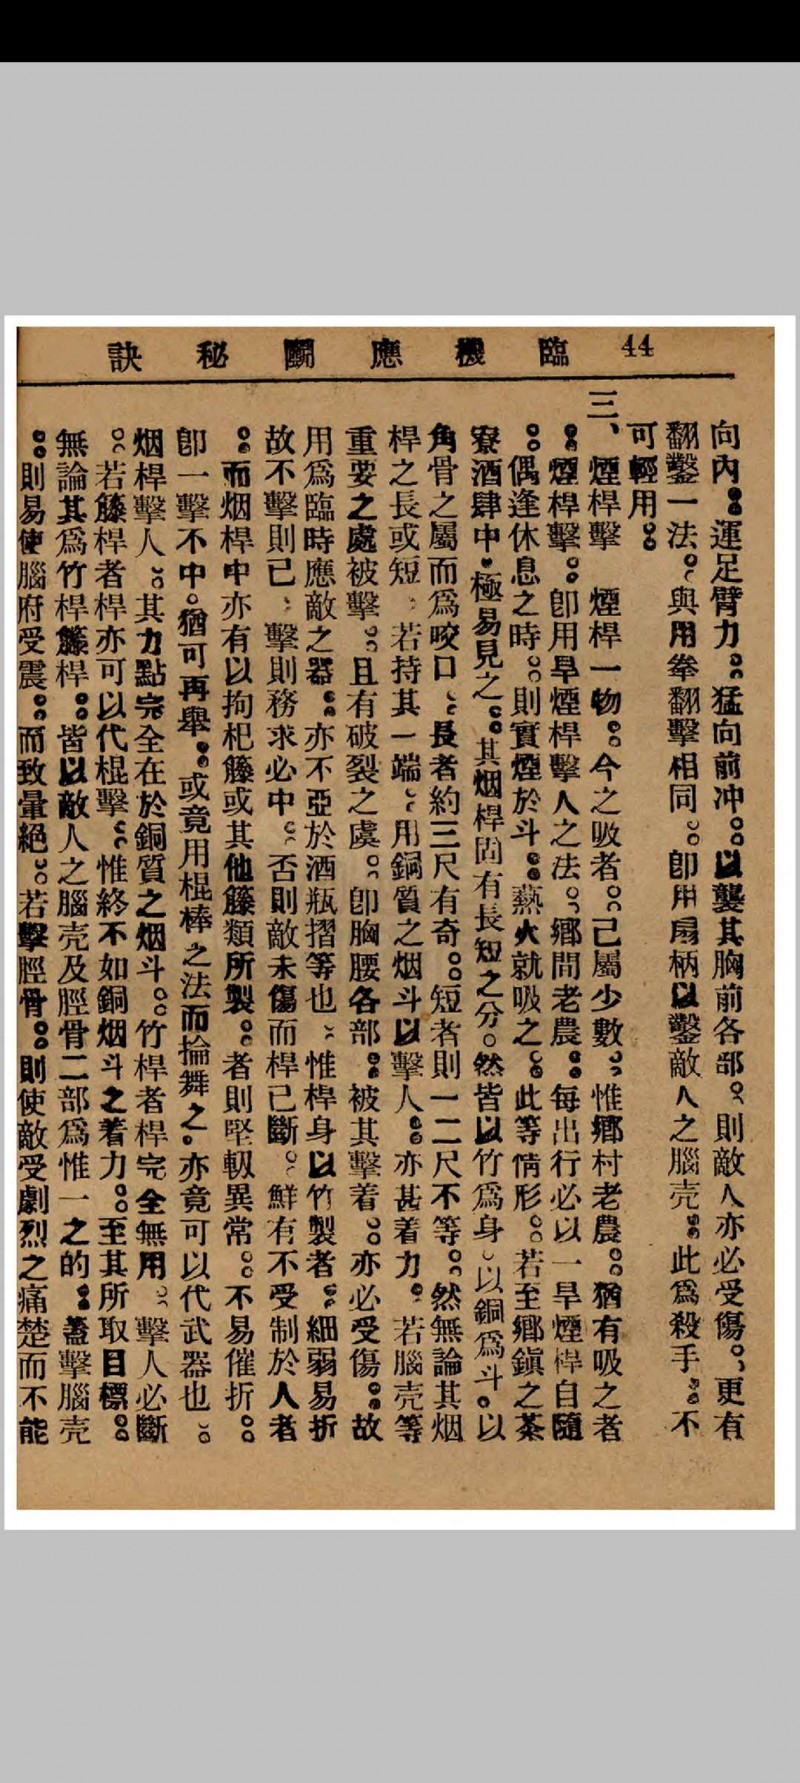 44 臨機應鬭秘訣
向內。運足臂力。猛向前冲。以襲其胸前各部。則敵人亦必受傷。更有
翻鑿一法。與用拳翻擊相同。卽用扇柄以鑿敵人之腦壳。此爲殺手。不
可輕用。
三、煙桿擊 煙桿一物。今之吸者。已屬少數。惟鄉村老農。猶有吸之者
。煙桿擊。卽用旱煙桿擊人之法。鄉間老農。每出行必以一旱煙桿自隨
。偶逢休息之時。則實煙於斗。爇火就吸之。此等情形。若至鄉鎭之茶
寮酒肆中。極易見之。其烟桿固有長短之分。然皆以竹爲身。以銅爲斗。以
角骨之屬而爲咬口。長者約三尺有奇。短者則一二尺不等。然無論其烟
桿之長或短。若持其一端。用銅質之烟斗以擊人。亦甚着力。若腦壳等
重要之處被擊。且有破裂之虞。卽胸腰各部。被其擊着。亦必受傷。故
用爲臨時應敵之器。亦不亞於酒瓶摺等也。惟桿身以竹製者。細弱易折
故不擊則已。擊則務求必中。否則敵未傷而桿已斷。鮮有不受制於人者
。而烟桿中亦有以拘杞籐或其他籐類所製。者則堅靱異常。不易催折。
卽一擊不中。猶可再舉。或竟用棍棒之法而掄舞之。亦竟可以代武器也。
烟桿擊人。其力點完全在於銅質之烟斗。竹桿者桿完全無用。擊人必斷
。若籐桿者桿亦可以代棍擊。惟終不如銅烟斗之着力。至其所取目標。
無論其爲竹桿籐桿。皆以敵人之腦壳及脛骨二部爲惟一之的。蓋擊腦壳
。則易使腦府受震。而致暈絕。若擊脛骨。則使敵受劇烈之痛楚而不能